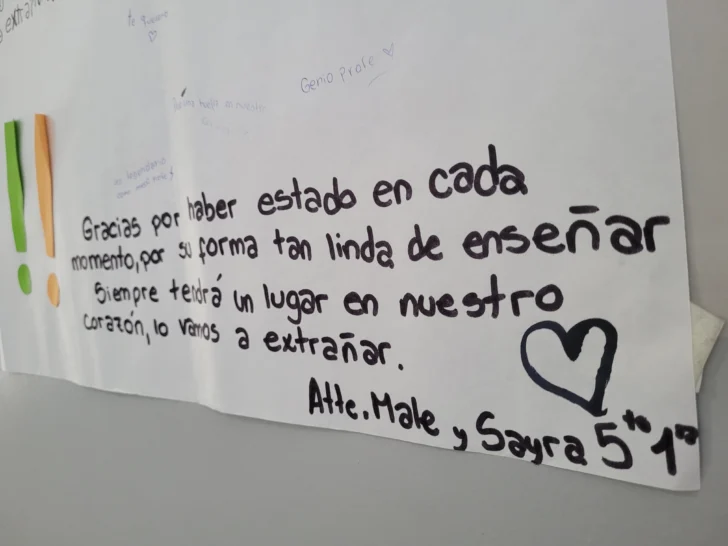 extrañ
te quiero
Genio Profe
Gracias por haber estado en cada
momento, por su forma tan linda de enseñar
Siempre tendrá un lugar en nuestro
corazón, lo vamos a extrañar.
Atte. Male y Sayra 5to 1ra